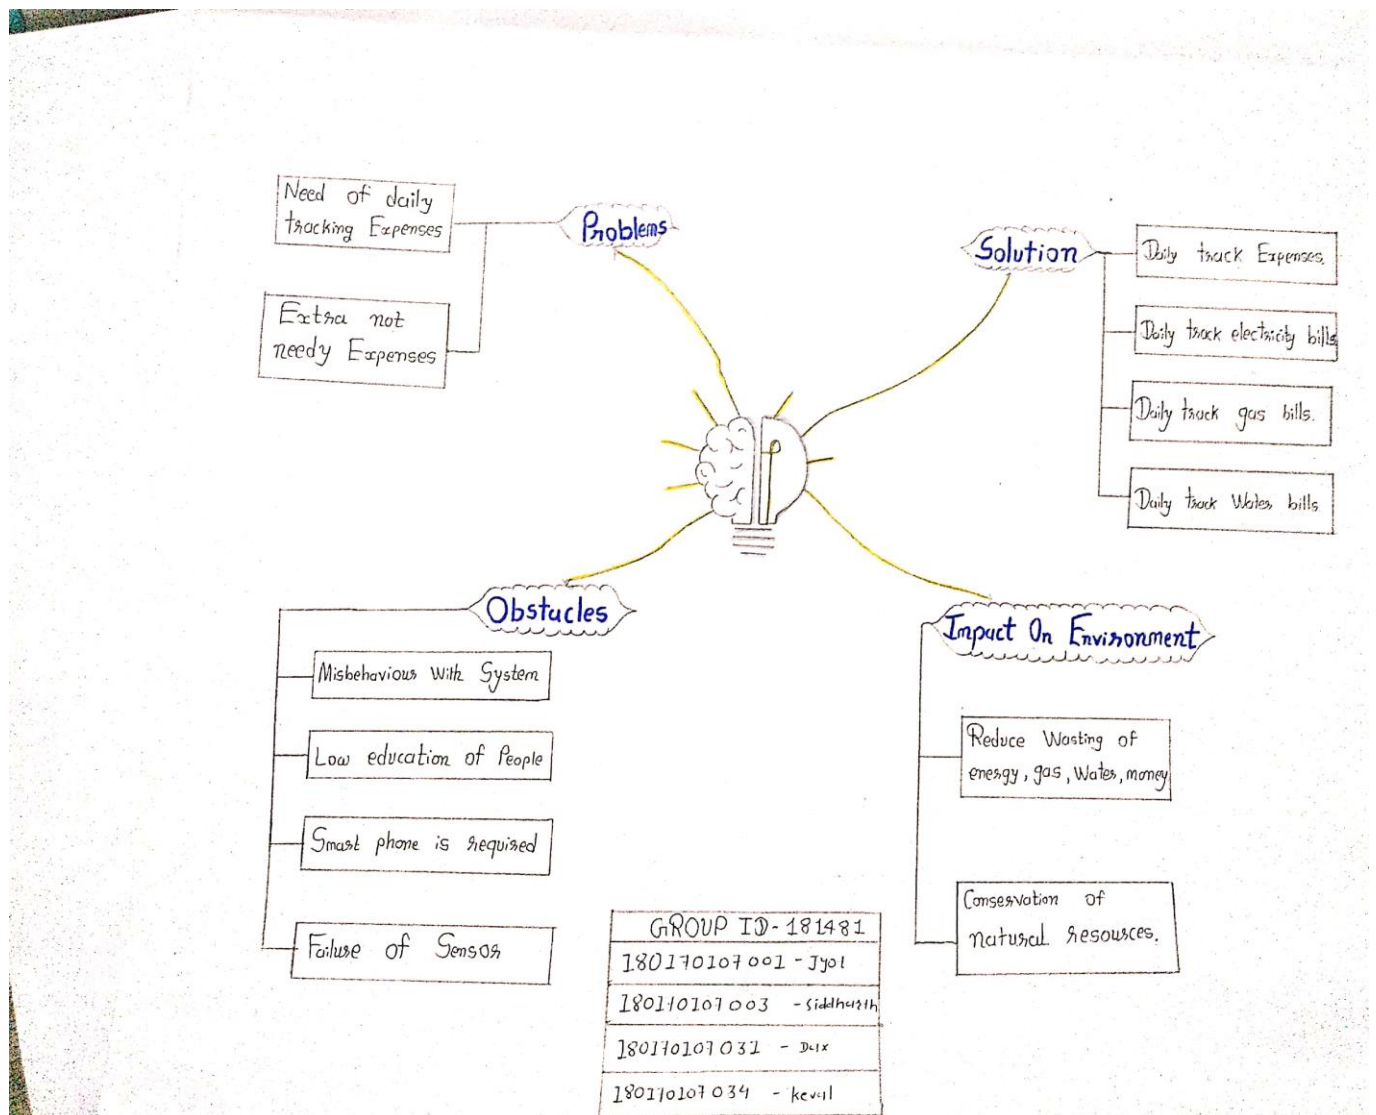 Problems
Need of daily
tracking Expenses
Extra not
needy Expenses
Solution
Daily track Expenses.
Daily track electricity bills
Daily track gas bills.
Daily track Water bills
Obstacles
Misbehaviour With System
Low education of People
Smart phone is required
Failure of Sensor
Impact On Environment
Reduce Wasting of
energy, gas, Water, money
Conservation of
natural resources.
GROUP ID - 181481
180170107001 - Jyot
180170107003 - Siddharth
180170107031 - Daix
180170107034 - keval